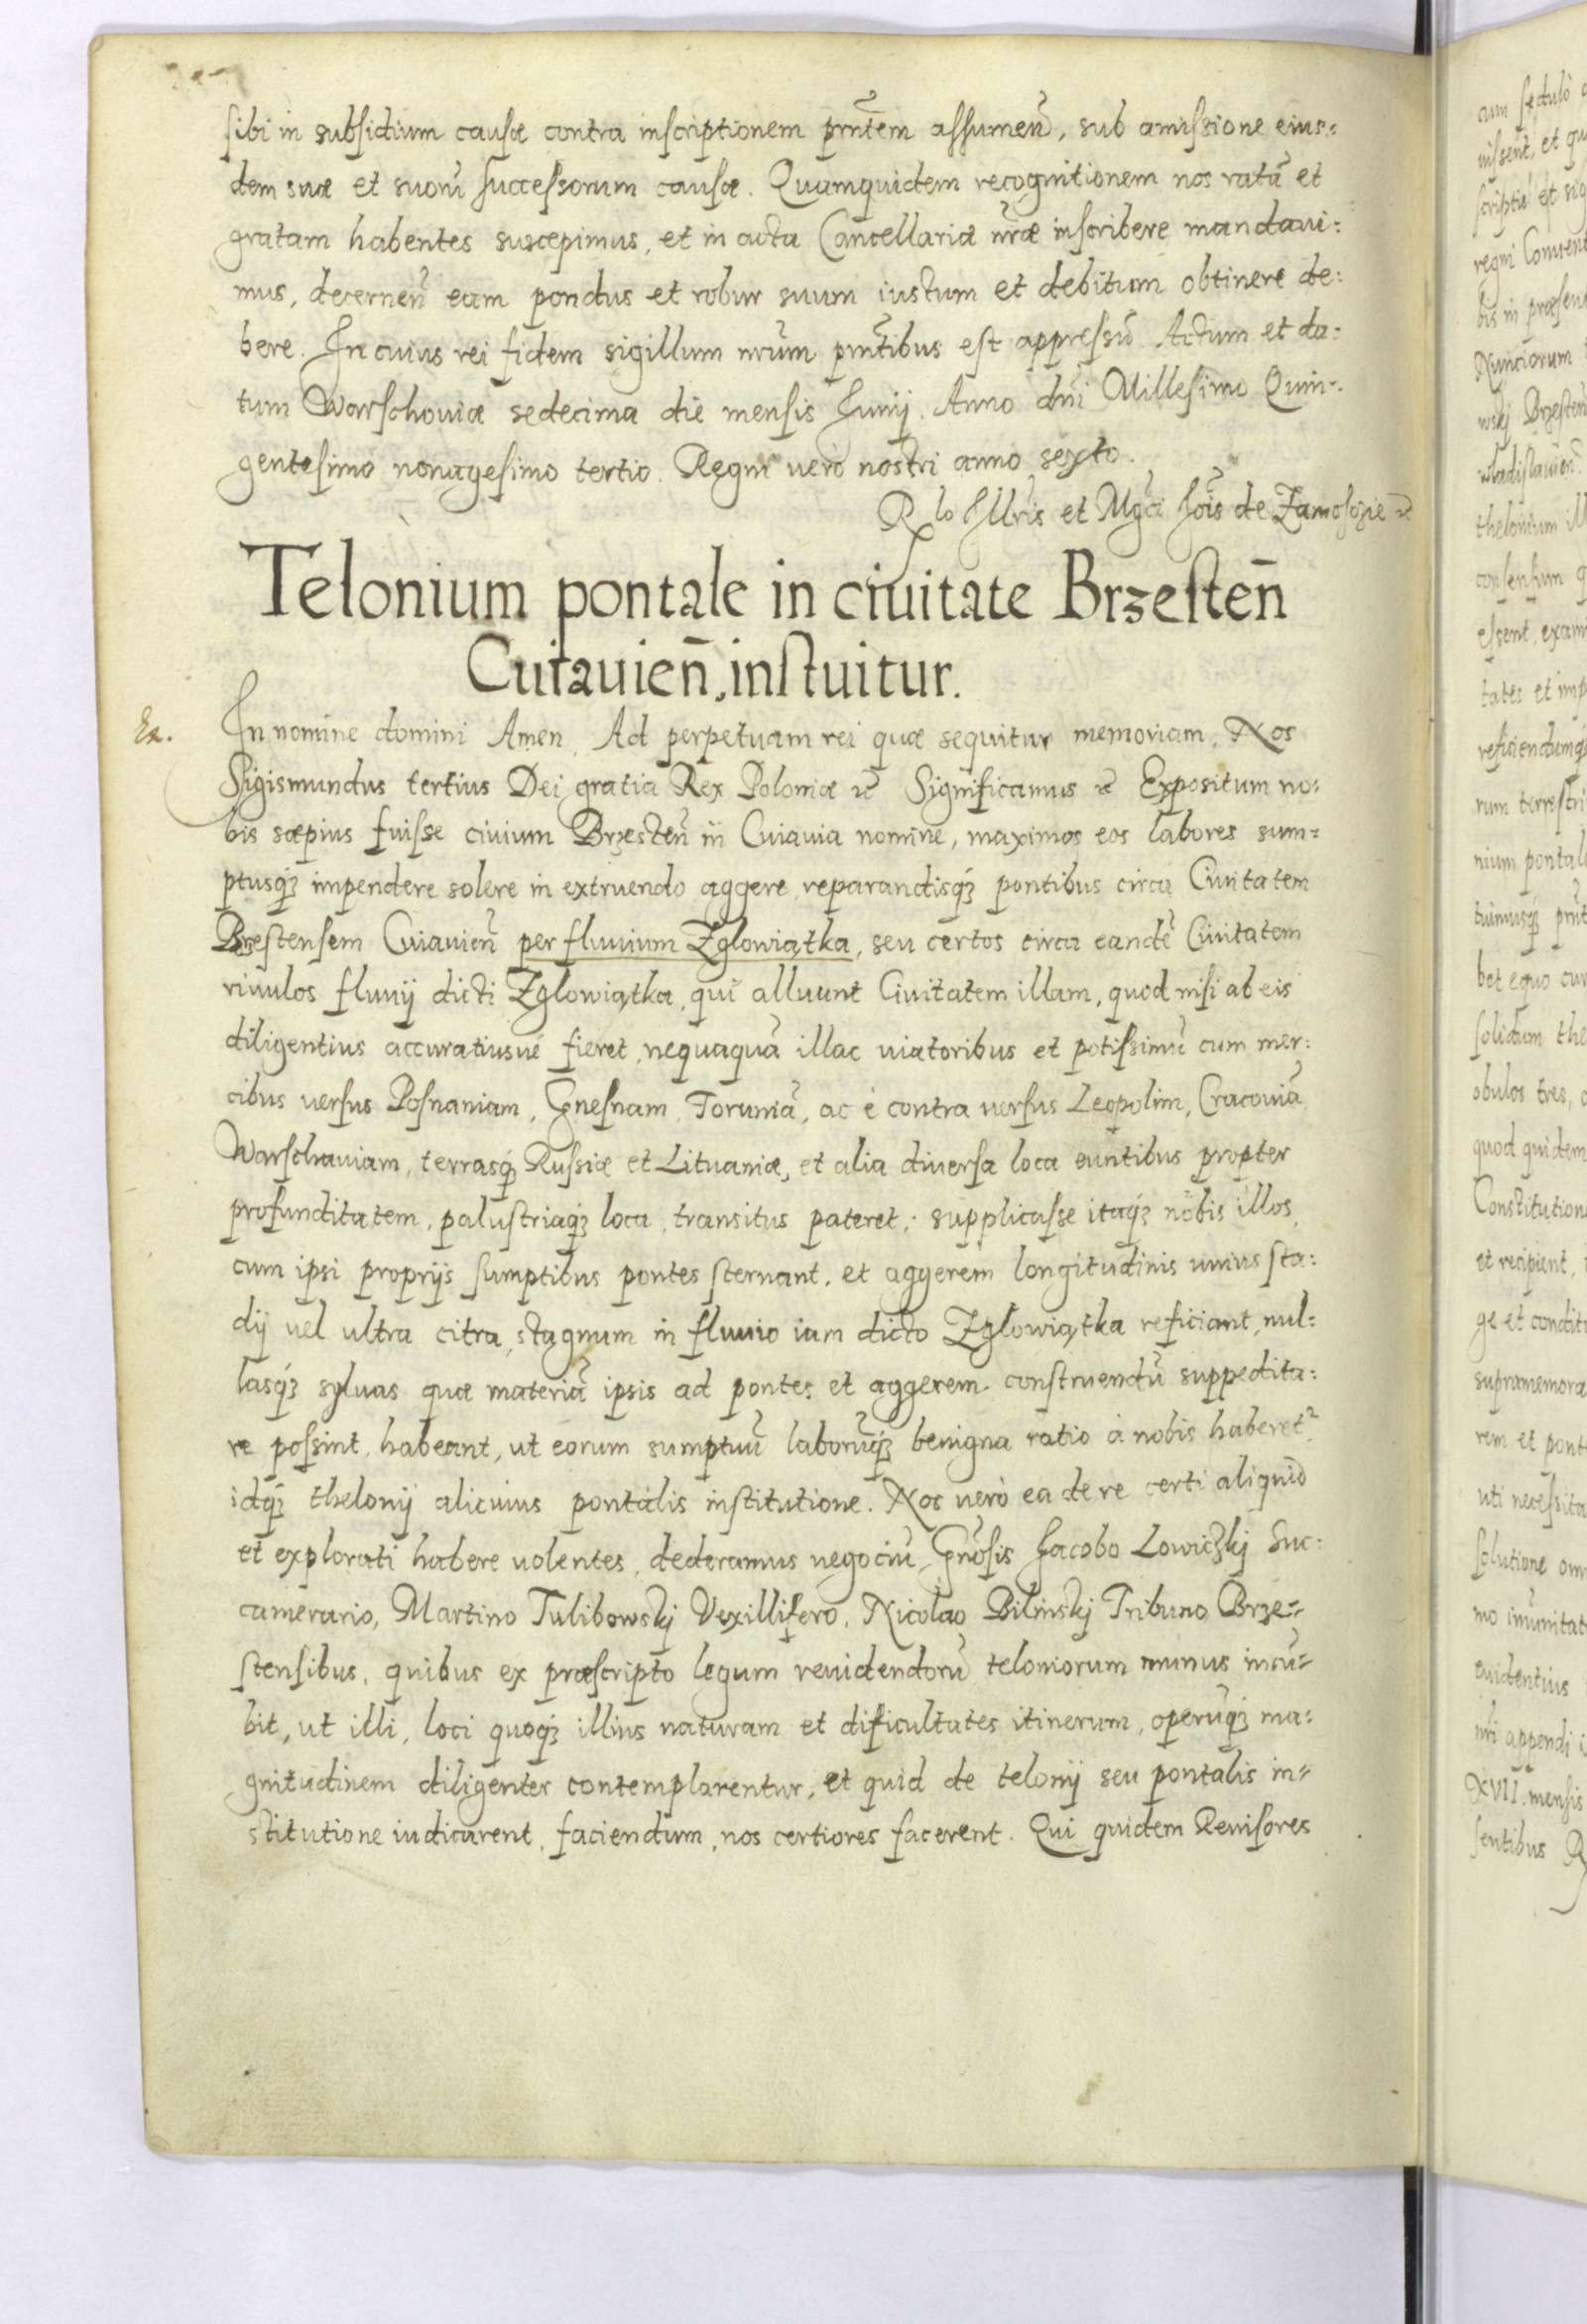 sibi in subsidium causæ contra inscriptionem pñtem assumeñ, sub amissione eius=
dem suæ et suorū successorum causæ. Quamquidem recognitionem nos ratā et
gratam habentes suscepimus, et in acta Cancellariæ nr̄æ inscribere mandaui=
mus, decerneñ eam pondus et robur suum iustum et debitum obtinere de=
bere. In cuius rei fidem sigillum nr̄um pñtibus est appressū. Actum et da=
tum Warschouiæ sedecima die mensis Junij. Anno dñi Millesimo Quin=
gentesimo nonagesimo tertio. Regni vero nostri anno sexto.
Rlo Illris et Mgci Jois de Zamoscie
Telonium pontale in ciuitate Brzesteñ
Cuiauieñ, instuitur.
Ex.
In nomine domini Amen. Ad perpetuam rei quæ sequitur memoriam. Nos
Sigismundus tertius Dei gratia Rex Poloniæ ꝛc̄ Significamus ꝛc̄ Expositum no=
bis sæpius fuisse ciuium Brzesteñ in Cuiauia nomine, maximos eos labores sum=
ptusq́ꝫ impendere solere in extruendo aggere, reparandisq́ꝫ pontibus circa Ciuitatem
Brzestensem Cuiauieñ per fluuium Zglowiątka, seu certos circa eandē Ciuitatem
riuulos fluuij dicti Zglowiątka, qui alluunt Ciuitatem illam, quod nisi ab eis
diligentius accuratiusué fieret, nequaquā illac uiatoribus et potissimū cum mer=
cibus uersus Posnaniam, Gnesnam, Toruniā, ac è contra uersus Leopolim, Cracouiā,
Warschauiam, terrasq́ꝫ Russiæ et Lituaniæ, et alia diuersa loca euntibus propter
profunditatem, palustriaq́ꝫ loca, transitus pateret; supplicasse itaq́ꝫ nobis illos,
cum ipsi proprijs sumptibus pontes sternant, et aggerem longitudinis unius sta=
dij uel ultra citra stagnum in fluuio iam dicto Zglowiątka reficiant, nul=
lasq́ꝫ syluas quæ materiā ipsis ad pontes et aggerem construendū suppedita=
re possint, habeant, ut eorum sumptuū laborūq́ꝫ benigna ratio à nobis haberet²,
idq́ꝫ thelonij alicuius pontalis institutione. Nos uerò ea de re certi aliquid
et explorati habere uolentes, dederamus negociū Gnōsis Jacobo Lowiczkj Suc=
camerario, Martino Tulibowskj Vexillifero, Nicolao Bilinskj Tribuno Brze=
stensibus, quibus ex præscripto legum reuidendorū teloniorum munus incū=
bit, ut illi, loci quoq́ꝫ illius naturam et dificultates itinerum, operūq́ꝫ ma=
gnitudinem diligenter contemplarentur, et quid de telonij seu pontalis in=
stitutione iudicarent, faciendum, nos certiores facerent. Qui quidem Reuisores